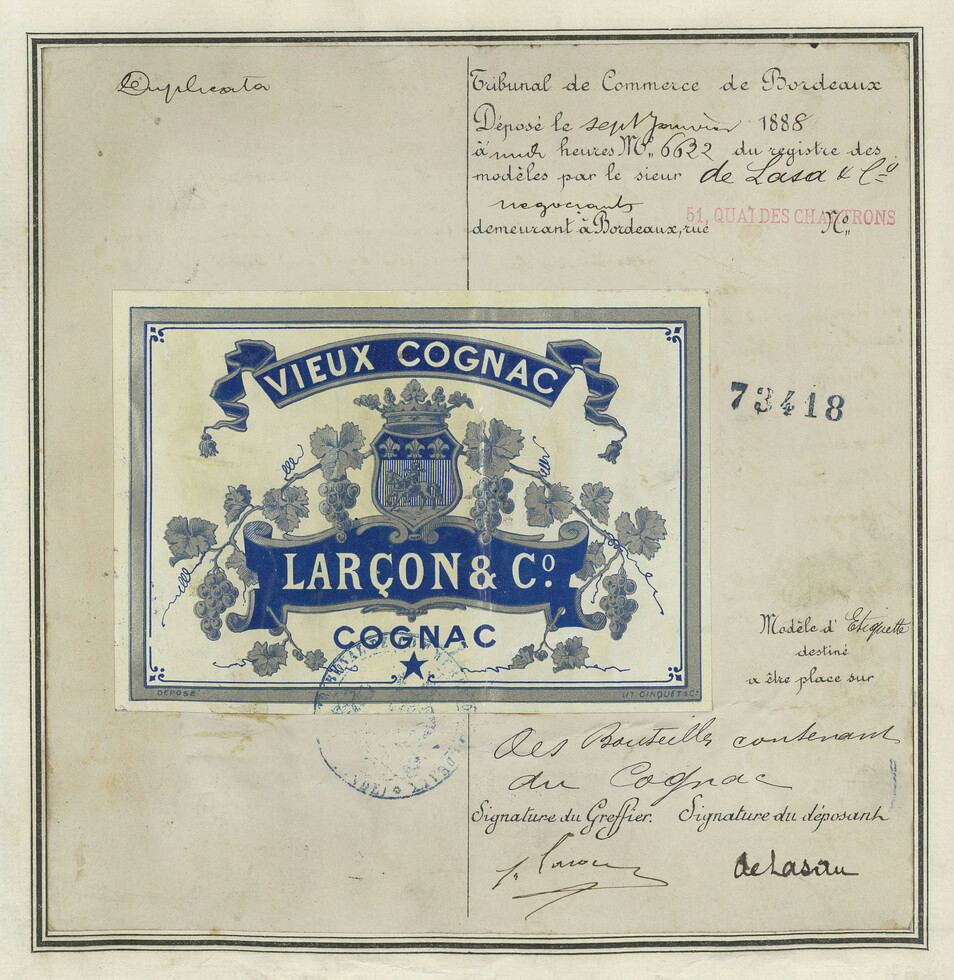 Duplicata
Tribunal de Commerce de Bordeaux
Déposé le sept Janvier 1888
à midi heures Nº 6632 du registre des
modèles par le sieur de Lasa & Cº
negociants
demeurant à Bordeaux, rue 51, QUAI DES CHARTRONS Nº
VIEUX COGNAC
73418
LARÇON & Cº
COGNAC
DÉPOSÉ
LIT. CINQUET & Cº
Modèle d' Etiquette
destiné
a être place sur
des Bouteilles contenant
du Cognac
Signature du Greffier. Signature du déposant